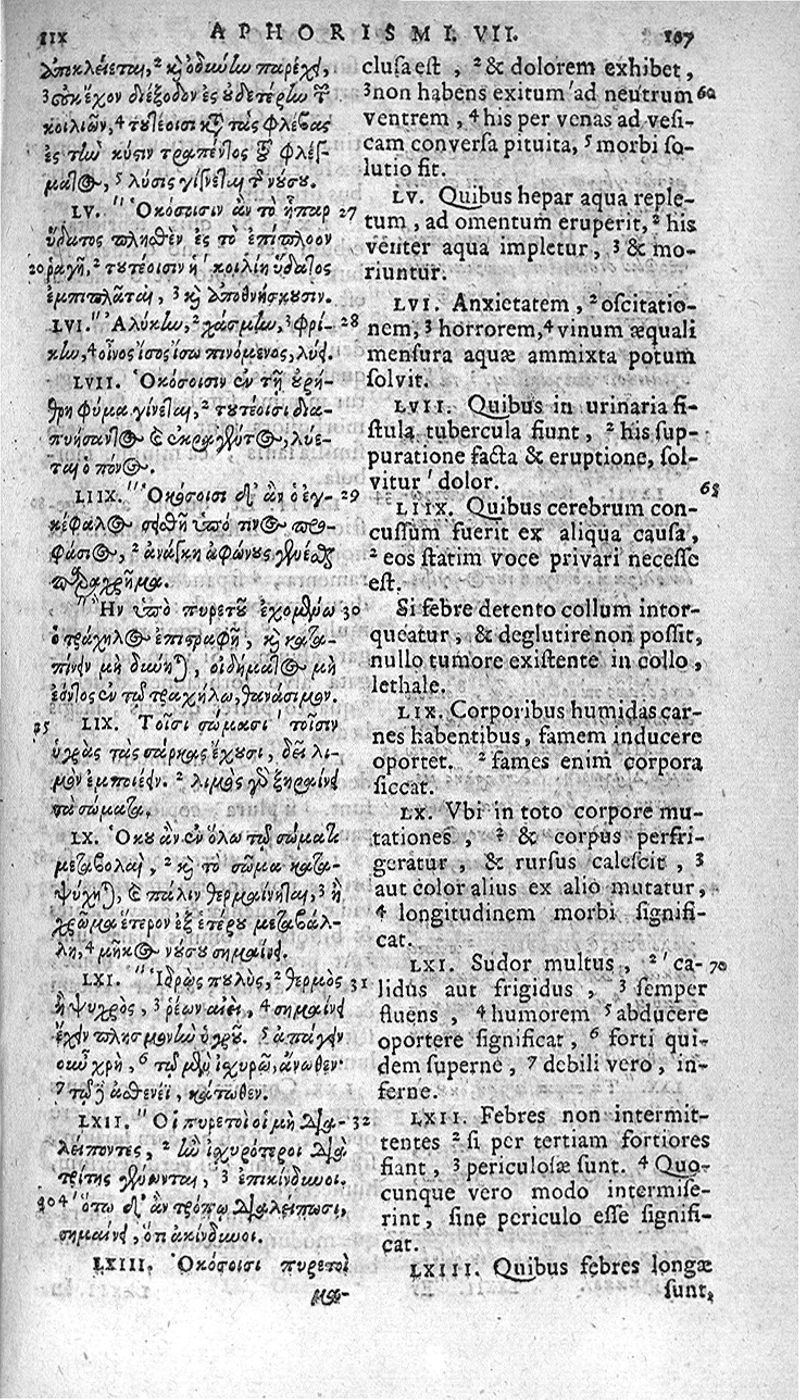 IIX APHORISMI. VII. 107
ἀποκλείεται, ² κὶ ὀδύνην παρέχει,
³ οὐκ ἔχον διέξοδον ἐς οὐδετέρην τῶν
κοιλιῶν, ⁴ τουτέοισι κατὰ τὰς φλέβας
ἐς τὴν κύστιν τραπέντος τοῦ φλέγ-
ματος, ⁵ λύσις γίγνεται τῆς νούσου.
LV. " Ὁκόσοισιν ἂν τὸ ἧπαρ 27
ὕδατος πληθὲν ἐς τὸ ἐπίπλοον
20 ῥαγῇ, ² τουτέοισιν ἡ κοιλίη ὕδατος
ἐμπίπλαται, ³ κὶ ἀποθνήσκουσιν.
LVI. " Ἀλύκην, ² χάσμην, ³ φρί- 28
κην, ⁴ οἶνος ἴσος ἴσῳ πινόμενος, λύει.
LVII. Ὁκόσοισιν ἐν τῇ οὐρή-
θρῃ φύμα γίνεται, ² τουτέοισι δια-
πυήσαντος κὶ ἐκραγέντος, λύε-
ται ὁ πόνος.
LIIX. " Ὁκόσοισι δ' ἂν ὁ ἐγ- 29
κέφαλος σεισθῇ ὑπό τινος προ-
φάσιος, ² ἀνάγκη ἀφώνους γενέσθαι
παραχρῆμα.
" Ἢν ὑπὸ πυρετοῦ ἐχομένῳ 30
ὁ τράχηλος ἐπιστραφῇ, κὶ κατα-
πίνειν μὴ δύνηται, οἰδήματος μὴ
ἐόντος ἐν τῷ τραχήλῳ, θανάσιμον.
35 LIX. Τοῖσι σώμασι ' τοῖσιν
ὑγρὰς τὰς σάρκας ἔχουσι, δεῖ λι-
μὸν ἐμποιέειν. ² λιμὸς γὸ ξηραίνει
τὰ σώματα.
LX. Ὅκου ἂν ἐν ὅλῳ τῷ σώματι
μεταβολαὶ, ² κὶ τὸ σῶμα κατα-
ψύχηται, κὶ πάλιν θερμαίνηται, ³ ἢ
χρῶμα ἕτερον ἐξ ἑτέρου μεταβάλ-
λῃ, ⁴ μῆκος νούσου σημαίνει.
LXI. " Ἱδρὼς πουλὺς, ² θερμὸς 31
ἢ ψυχρὸς, ³ ῥέων αἰεὶ, ⁴ σημαίνει
ἔχειν πλησμονὴν ὑγροῦ. ⁵ ἀπάγειν
οὖν χρὴ, ⁶ τῷ μὲν ἰσχυρῷ, ἄνωθεν·
⁷ τῷ δὲ ἀσθενέϊ, κάτωθεν.
LXII. " Οἱ πυρετοὶ οἱ μὴ δια- 32
λείποντες, ² ἢν ἰσχυρότεροι διὰ
τρίτης γένωνται, ³ ἐπικίνδυνοι.
40 ⁴ ὅτῳ δ' ἂν τρόπῳ διαλείπωσι,
σημαίνει, ὅτι ἀκίνδυνοι.
LXIII. Ὁκόσοισι πυρετοὶ
μα-
clusa est, ² & dolorem exhibet,
³ non habens exitum ' ad neutrum 60
ventrem, ⁴ his per venas ad vesi-
cam conversa pituita, ⁵ morbi so-
lutio fit.
LV. Quibus hepar aqua reple-
tum, ad omentum eruperit, ² his
venter aqua impletur, ³ & mo-
riuntur.
LVI. Anxietatem, ² oscitatio-
nem, ³ horrorem, ⁴ vinum æquali
mensura aquæ ammixta potum
solvit.
LVII. Quibus in urinaria fi-
stula tubercula fiunt, ² his sup-
puratione facta & eruptione, sol-
vitur ' dolor. 65
LIIX. Quibus cerebrum con-
cussum fuerit ex aliqua causa,
² eos statim voce privari necesse
est.
Si febre detento collum intor-
queatur, & deglutire non possit,
nullo tumore existente in collo,
lethale.
LIX. Corporibus humidas car-
nes habentibus, famem inducere
oportet. ² fames enim corpora
siccat.
LX. Vbi in toto corpore mu-
tationes, ² & corpus perfri-
geratur, & rursus calescit, ³
aut color alius ex alio mutatur,
⁴ longitudinem morbi signifi-
cat.
LXI. Sudor multus, ² ' ca- 70
lidus aut frigidus, ³ semper
fluens, ⁴ humorem ⁵ abducere
oportere significat, ⁶ forti qui-
dem superne, ⁷ debili vero, in-
ferne.
LXII. Febres non intermit-
tentes ² si per tertiam fortiores
fiant, ³ periculosæ sunt. ⁴ Quo-
cunque vero modo intermise-
rint, sine periculo esse signifi-
cat.
LXIII. Quibus febres longæ
sunt,